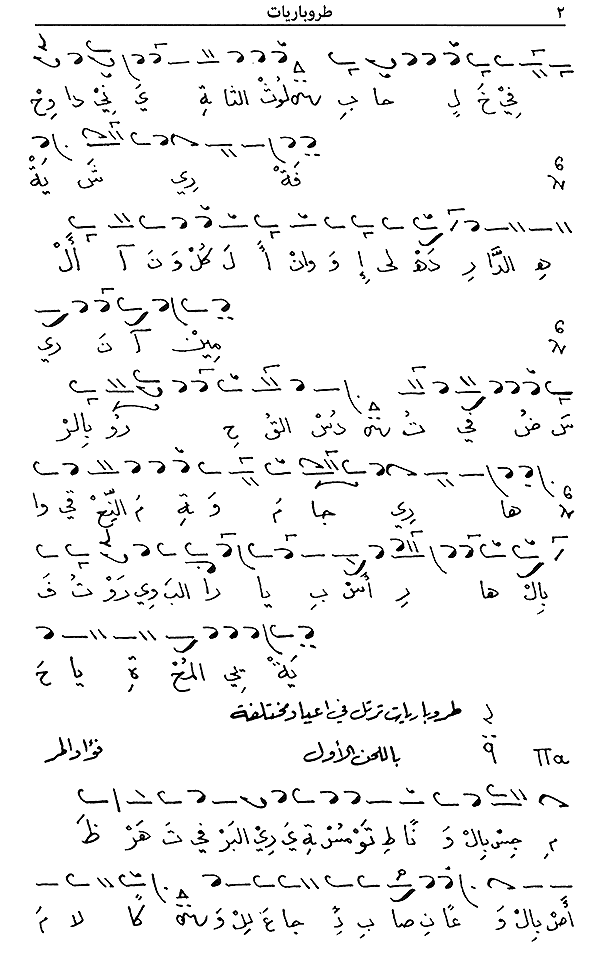 ٢ طروباريات
فِيْ خَ لِ حا بِ لُوْثْ الثا ةِ يَ فِيْ دا وِحْ
فَةْ رِي شَ يَةْ
هِ الدَّا رِ دَهْ لى إِ وَ وانْ أَ لَ كُلْ وَ نَ آ أَلْ
مِينْ آ نَ رِي
سَ ضُ فِي تُ دُسْ القُ حِ رُوْ بِالرْ
ها رِي جا مَ وَ ةِ مَ النِّعْ قي وا
بِالْ ها رِ أَسْ بِ يا را البَ دِي رَوْ تُ فَ
يَةْ يِي المُحْ ةِ يا حَ
طروباريات ترتل في اعياد مختلفة
πα باللحن الأول فؤاد المر
مِ جِسْ بِالْ وَ نًا طِ تَوْ مُسْ ةِ يَ رِيْ البَرْ فِي تَ هَرْ ظَ
أَصْ بِالْ وَ عًا نِ صا بِ ئِ جا عَ لِلْ وَ كا لا مَ